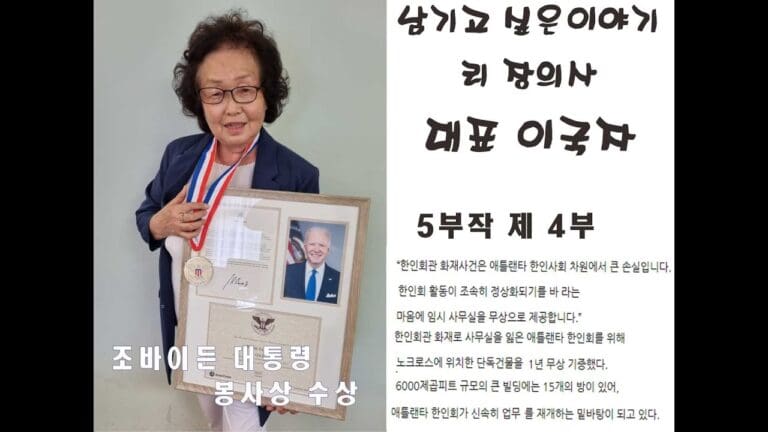 남기고 싶은이야기
리 장의사
대표 이국자
5부작 제 4부
“한인회관 화재사건은 애틀랜타 한인사회 차원에서 큰 손실입니다.
한인회 활동이 조속히 정상화되기를 바 라는
마음에 임시 사무실을 무상으로 제공합니다.”
한인회관 화재로 사무실을 잃은 애틀랜타 한인회를 위해
노크로스에 위치한 단독건물을 1년 무상 기증했다.
6000제곱피트 규모의 큰 빌딩에는 15개의 방이 있어,
애틀랜타 한인회가 신속히 업무 를 재개하는 밑바탕이 되고 있다.
조바이든 대통령
봉사상 수상